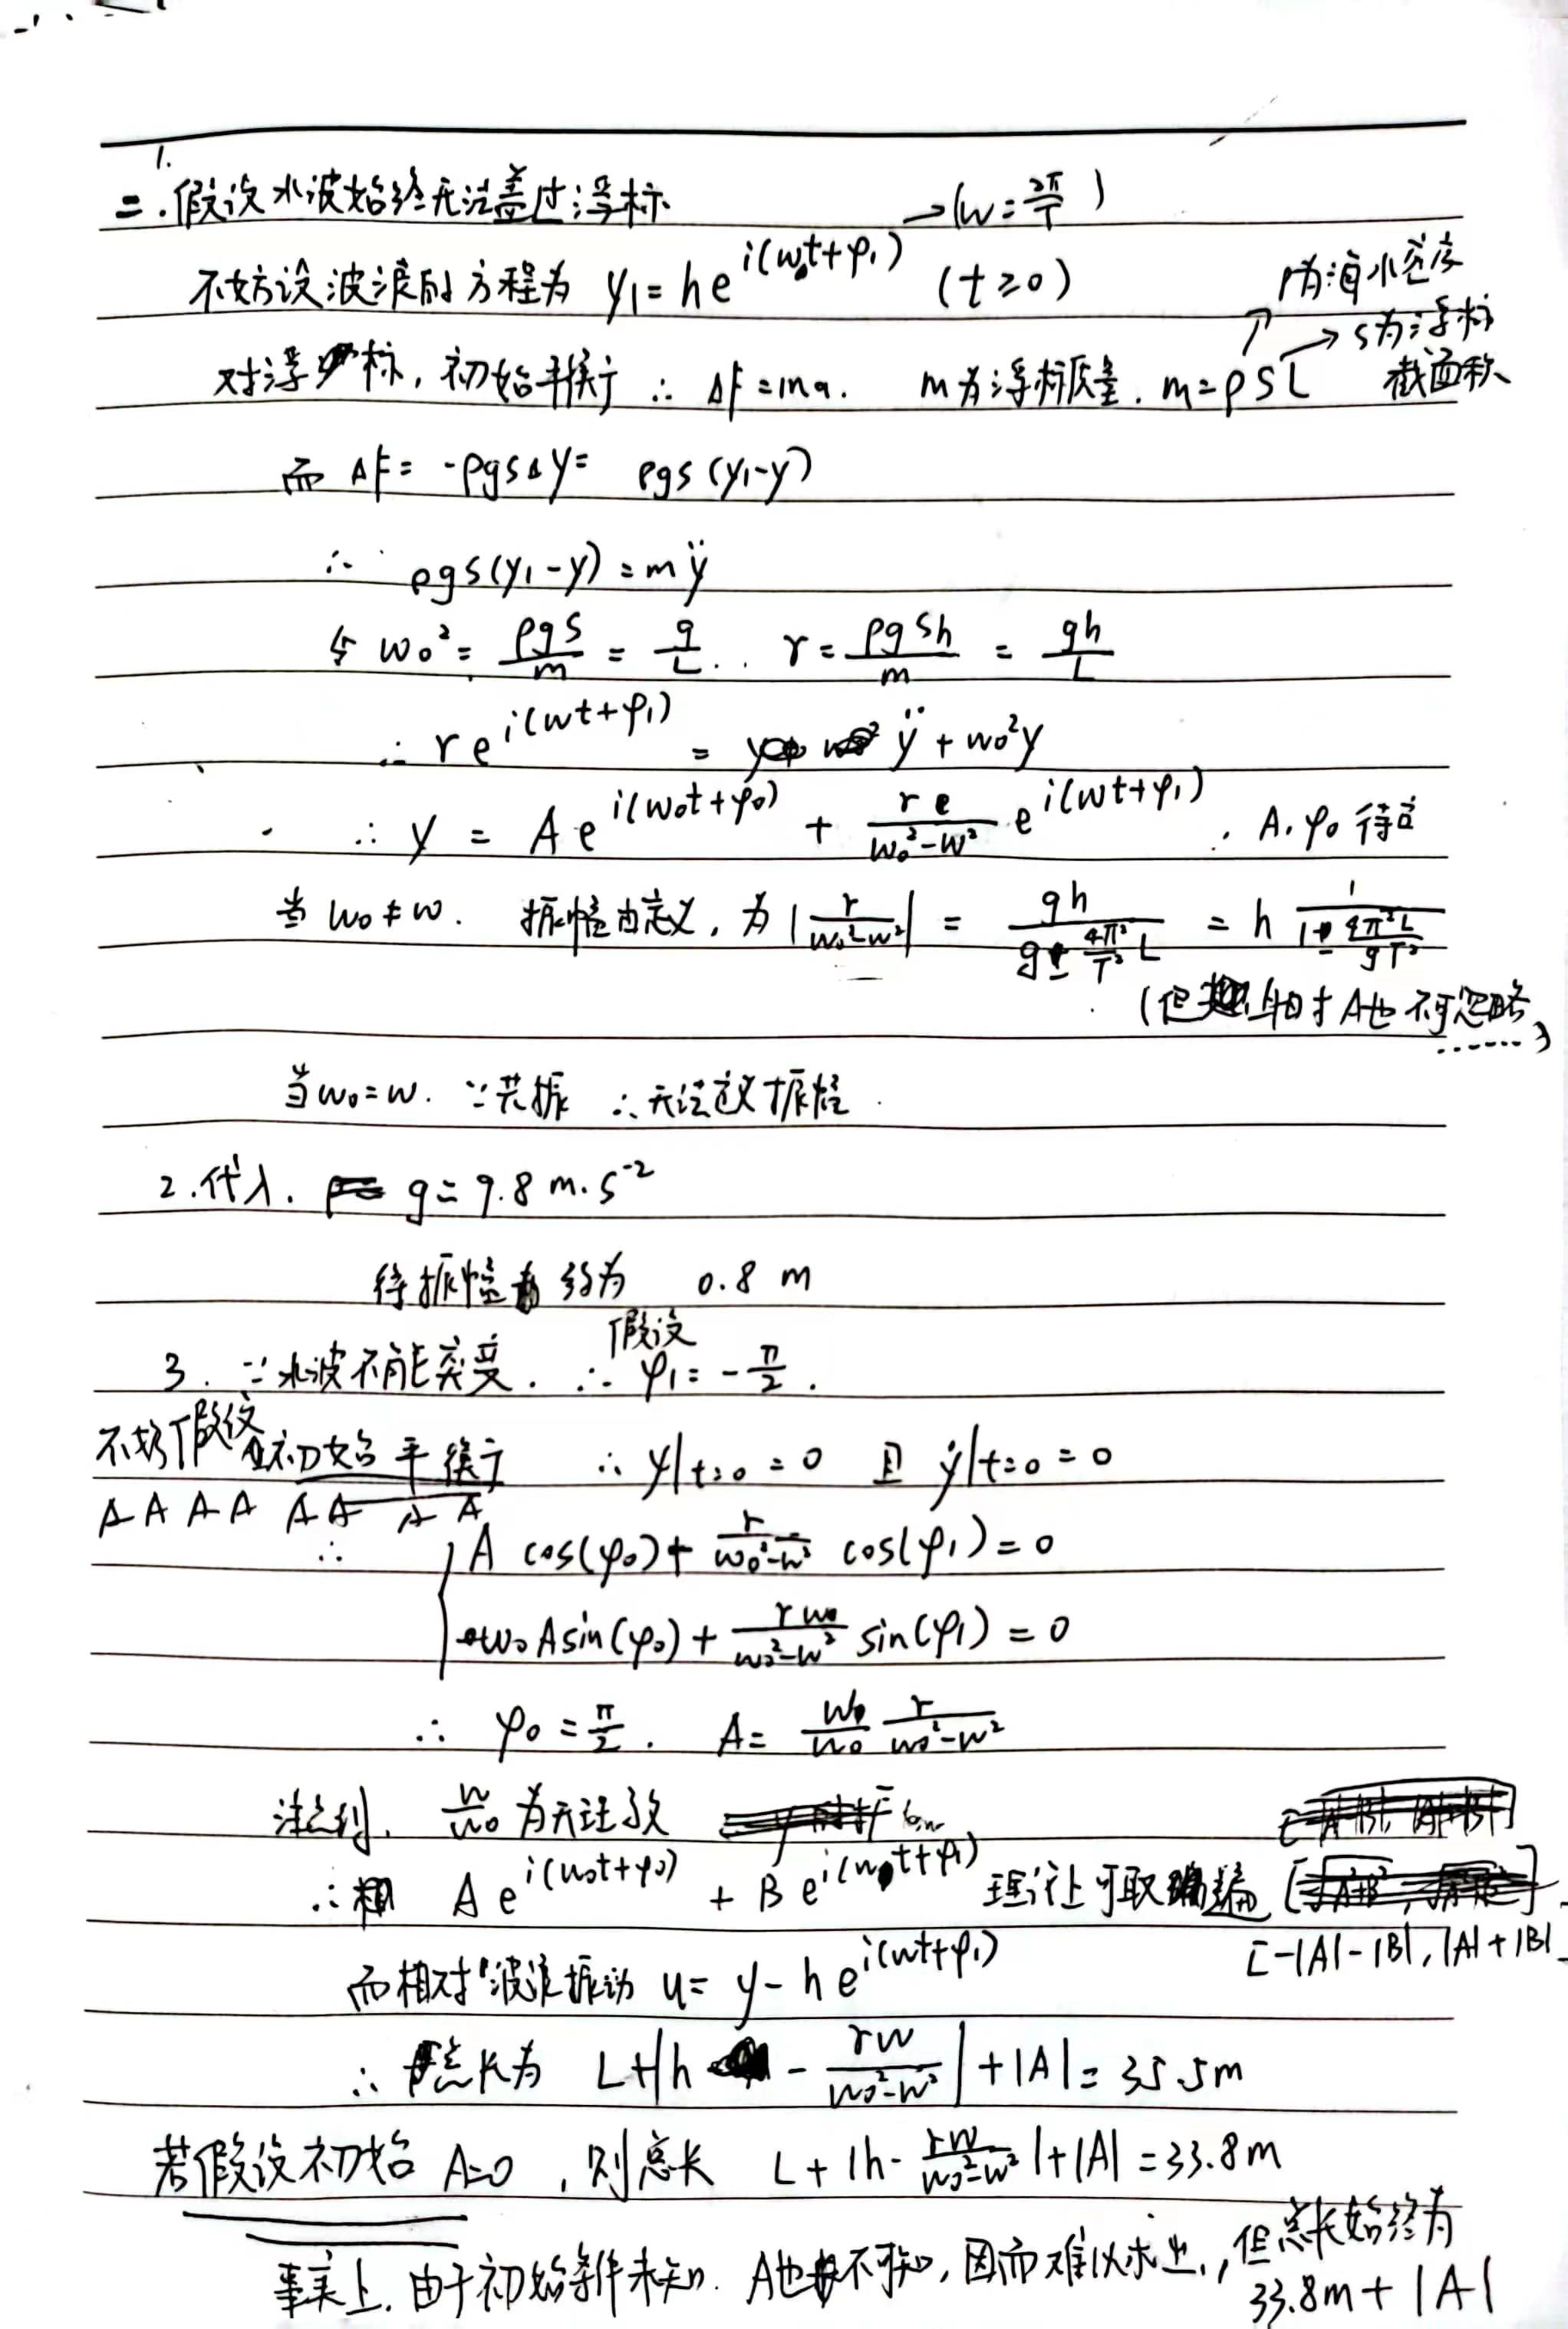 1.
二.假设水波始终无法盖过浮标 →(w=2π/T)
不妨设波浪的方程为 y₁=he^{i(wt+φ₁)} (t≥0) ρ为海水密度
对浮标,初始平衡 ∴ ΔF=ma. m为浮标质量. m=ρSL →S为浮标截面积
而 ΔF= -ρgsΔy= ρgs(y₁-y)
∴ ρgs(y₁-y)=mÿ
令 w₀²= ρgs/m = g/L . r= ρgsh/m = gh/L
∴ re^{i(wt+φ₁)} = ÿ+w₀²y
∴ y = Ae^{i(w₀t+φ₀)} + r/(w₀²-w²) e^{i(wt+φ₁)} . A.φ₀待定
当w₀≠w. 振幅由定义,为 |r/(w₀²-w²)| = gh/(g-4π²/T² L) = h 1/(1-4π²L/gT²)
(但 A也不可忽略......)
当w₀=w. ∵共振 ∴无法定义振幅.
2.代入. g=9.8 m·s⁻²
得振幅约为 0.8 m
3. ∵水波不能突变. ∴假设 φ₁=-π/2.
不妨假设初始平衡 ∴ y|t=0=0 且 ẏ|t=0=0
∴ { A cos(φ₀)+ r/(w₀²-w²) cos(φ₁)=0
w₀Asin(φ₀)+ rw₀/(w₀²-w²) sin(φ₁)=0
∴ φ₀=π/2. A= w/w₀ r/(w₀²-w²)
注意到, w/w₀为无理数
∴ Ae^{i(w₀t+φ₀)} + Be^{i(wt+φ₁)} 理论上可取遍
[-|A|-|B|, |A|+|B|
而相对波浪振动 u= y-he^{i(wt+φ₁)}
∴ 总长为 L+|h - rw/(w₀²-w²)|+|A|=35.5m
若假设初始 A=0 ,则总长 L+|h- rw/(w₀²-w²)|+|A|=33.8m
事实上.由于初始条件未知. A也不可知,因而难以求出,但总长始终为
33.8m+|A|